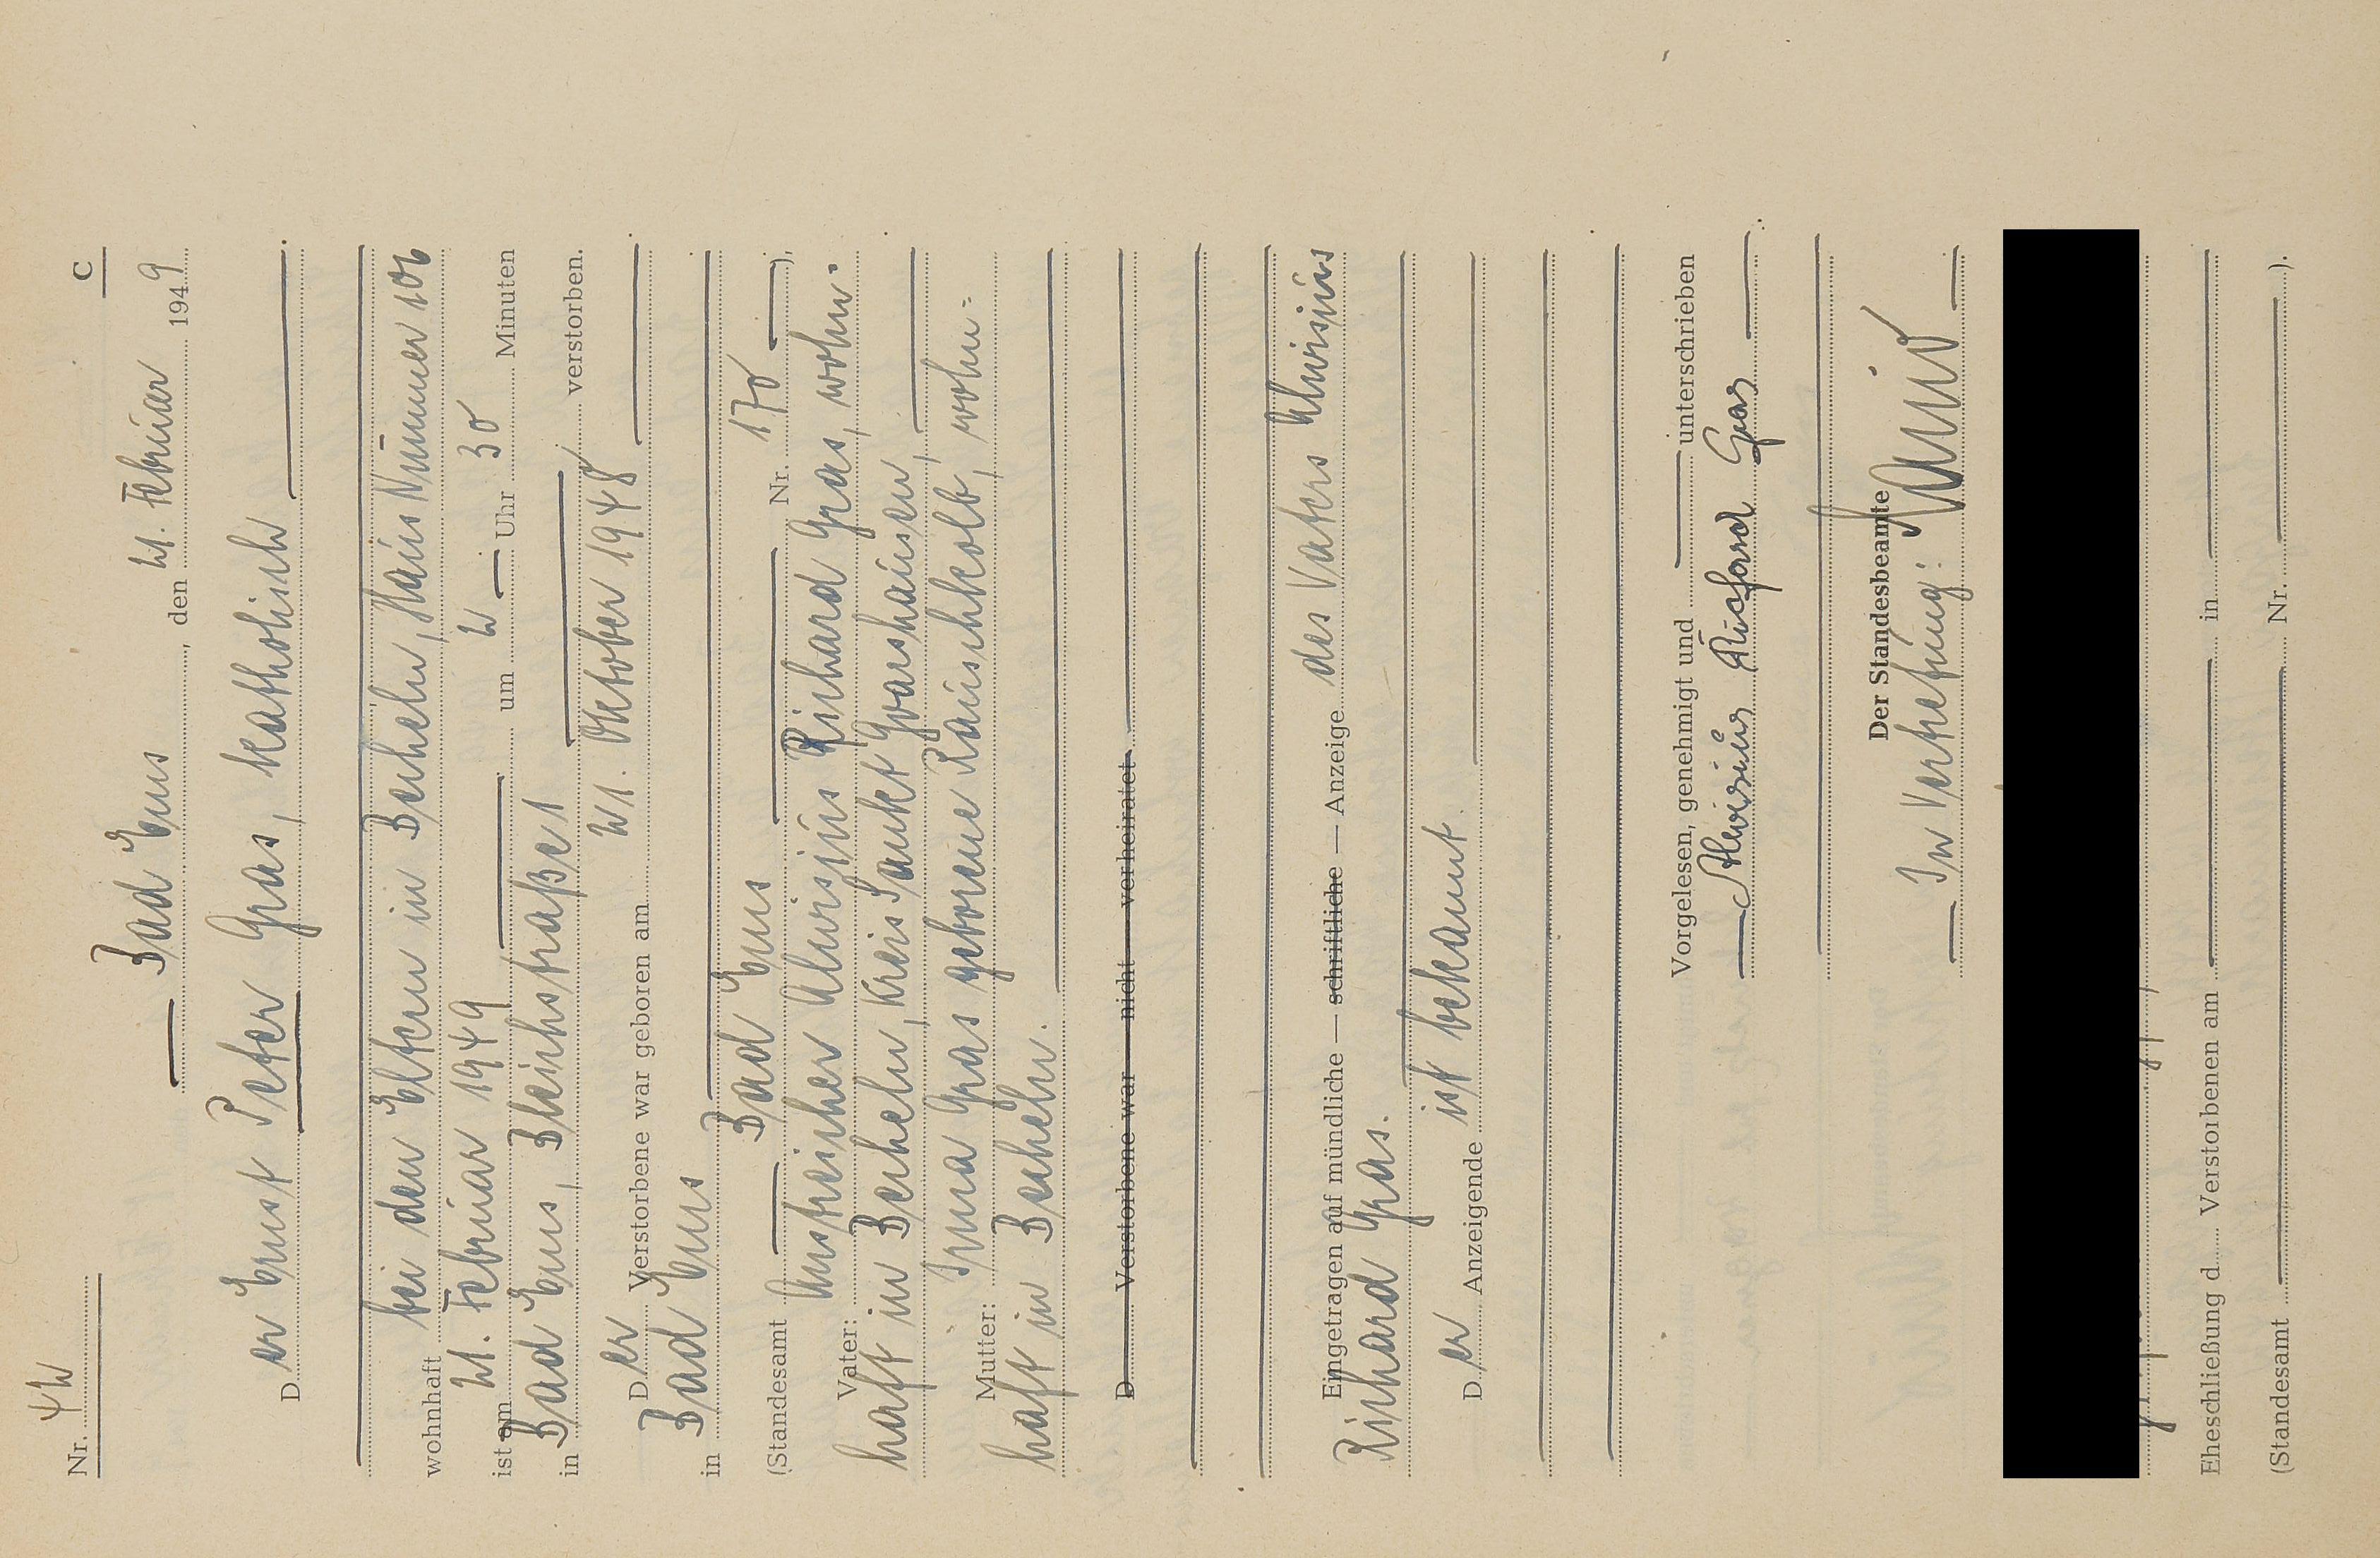 Nr. 42
C
Bad Ems, den 21. Februar 1949
Der Ernst Peter Gras, katholisch
wohnhaft bei den Eltern in Becheln, Haus Nummer 106
ist am 21. Februar 1949 um 2 Uhr 30 Minuten
in Bad Ems, Bleichstraße 1 verstorben.
Der Verstorbene war geboren am 21. Oktober 1948
in Bad Ems
(Standesamt Bad Ems Nr. 170),
Vater: Anstreicher Aloisius Richard Gras, wohn-
haft in Becheln, Kreis Sankt Goarshausen,
Mutter: Irma Gras geborene Rauschkolb, wohn=
haft in Becheln.
D Verstorbene war — nicht — verheiratet
Eingetragen auf mündliche — schriftliche — Anzeige des Vaters Aloisius
Richard Gras.
Der Anzeigende ist bekannt.
Vorgelesen, genehmigt und unterschrieben
Aloisius Richard Gras
Der Standesbeamte
In Vertretung:
Eheschließung d Verstorbenen am in
(Standesamt Nr. ).